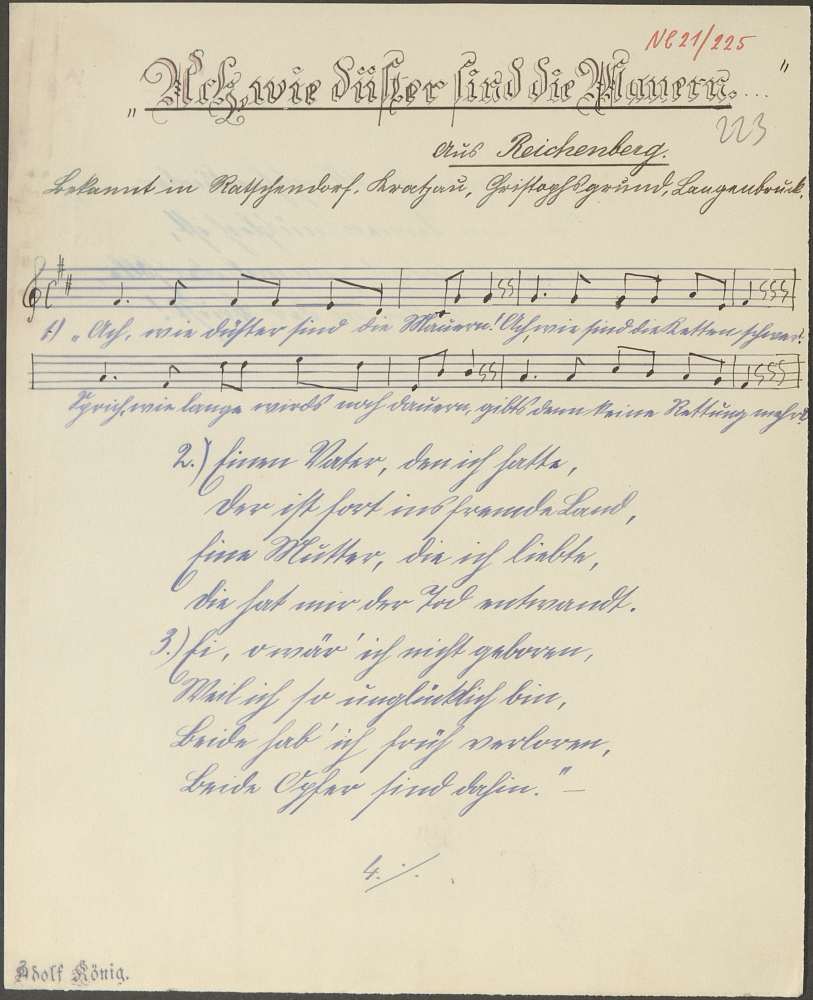 NC21/225
„Ach, wie düster sind die Mauern. . . ."
223
Aus Reichenberg.
Bekannt in Ratschendorf, Kratzau, Christophsgrund, Langenbruck.
1) „Ach, wie düster sind die Mauern! Ach, wie sind die Ketten schwer!
Sprich, wie lange wirds noch dauern, gibts denn keine Rettung mehr?
2.) Einen Vater, den ich hatte,
Der ist fort ins fremde Land,
Eine Mutter, die ich liebte,
Die hat mir der Tod entwandt.
3.) Ei, o wär' ich nicht geboren,
Weil ich so unglücklich bin,
Beide hab' ich früh verloren,
Beide Opfer sind dahin." —
4. ·/.
Adolf König.